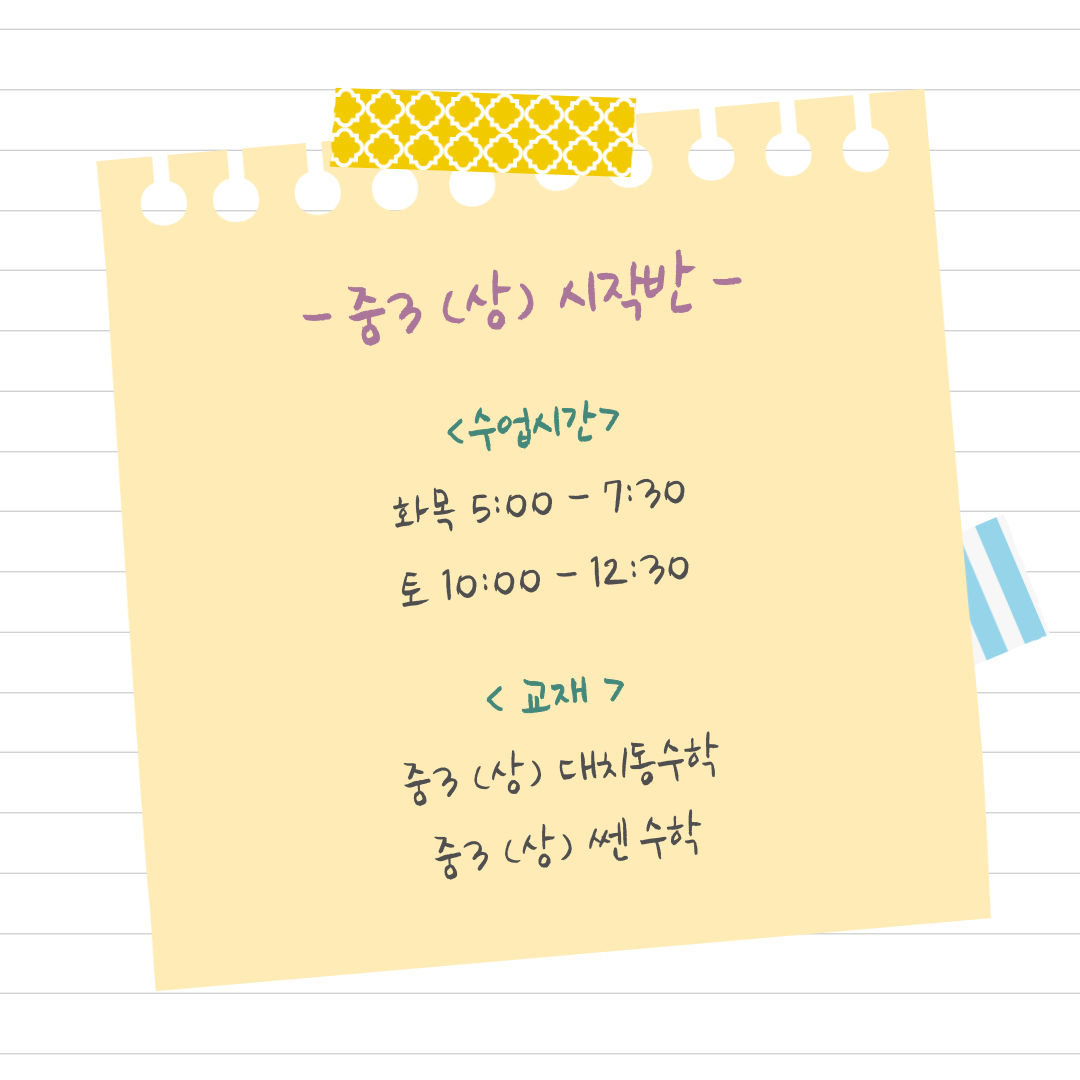 - 중3 (상) 시작반 -
<수업시간>
화목 5:00 - 7:30
토 10:00 - 12:30
< 교재 >
중3 (상) 대치동수학
중3 (상) 쎈 수학